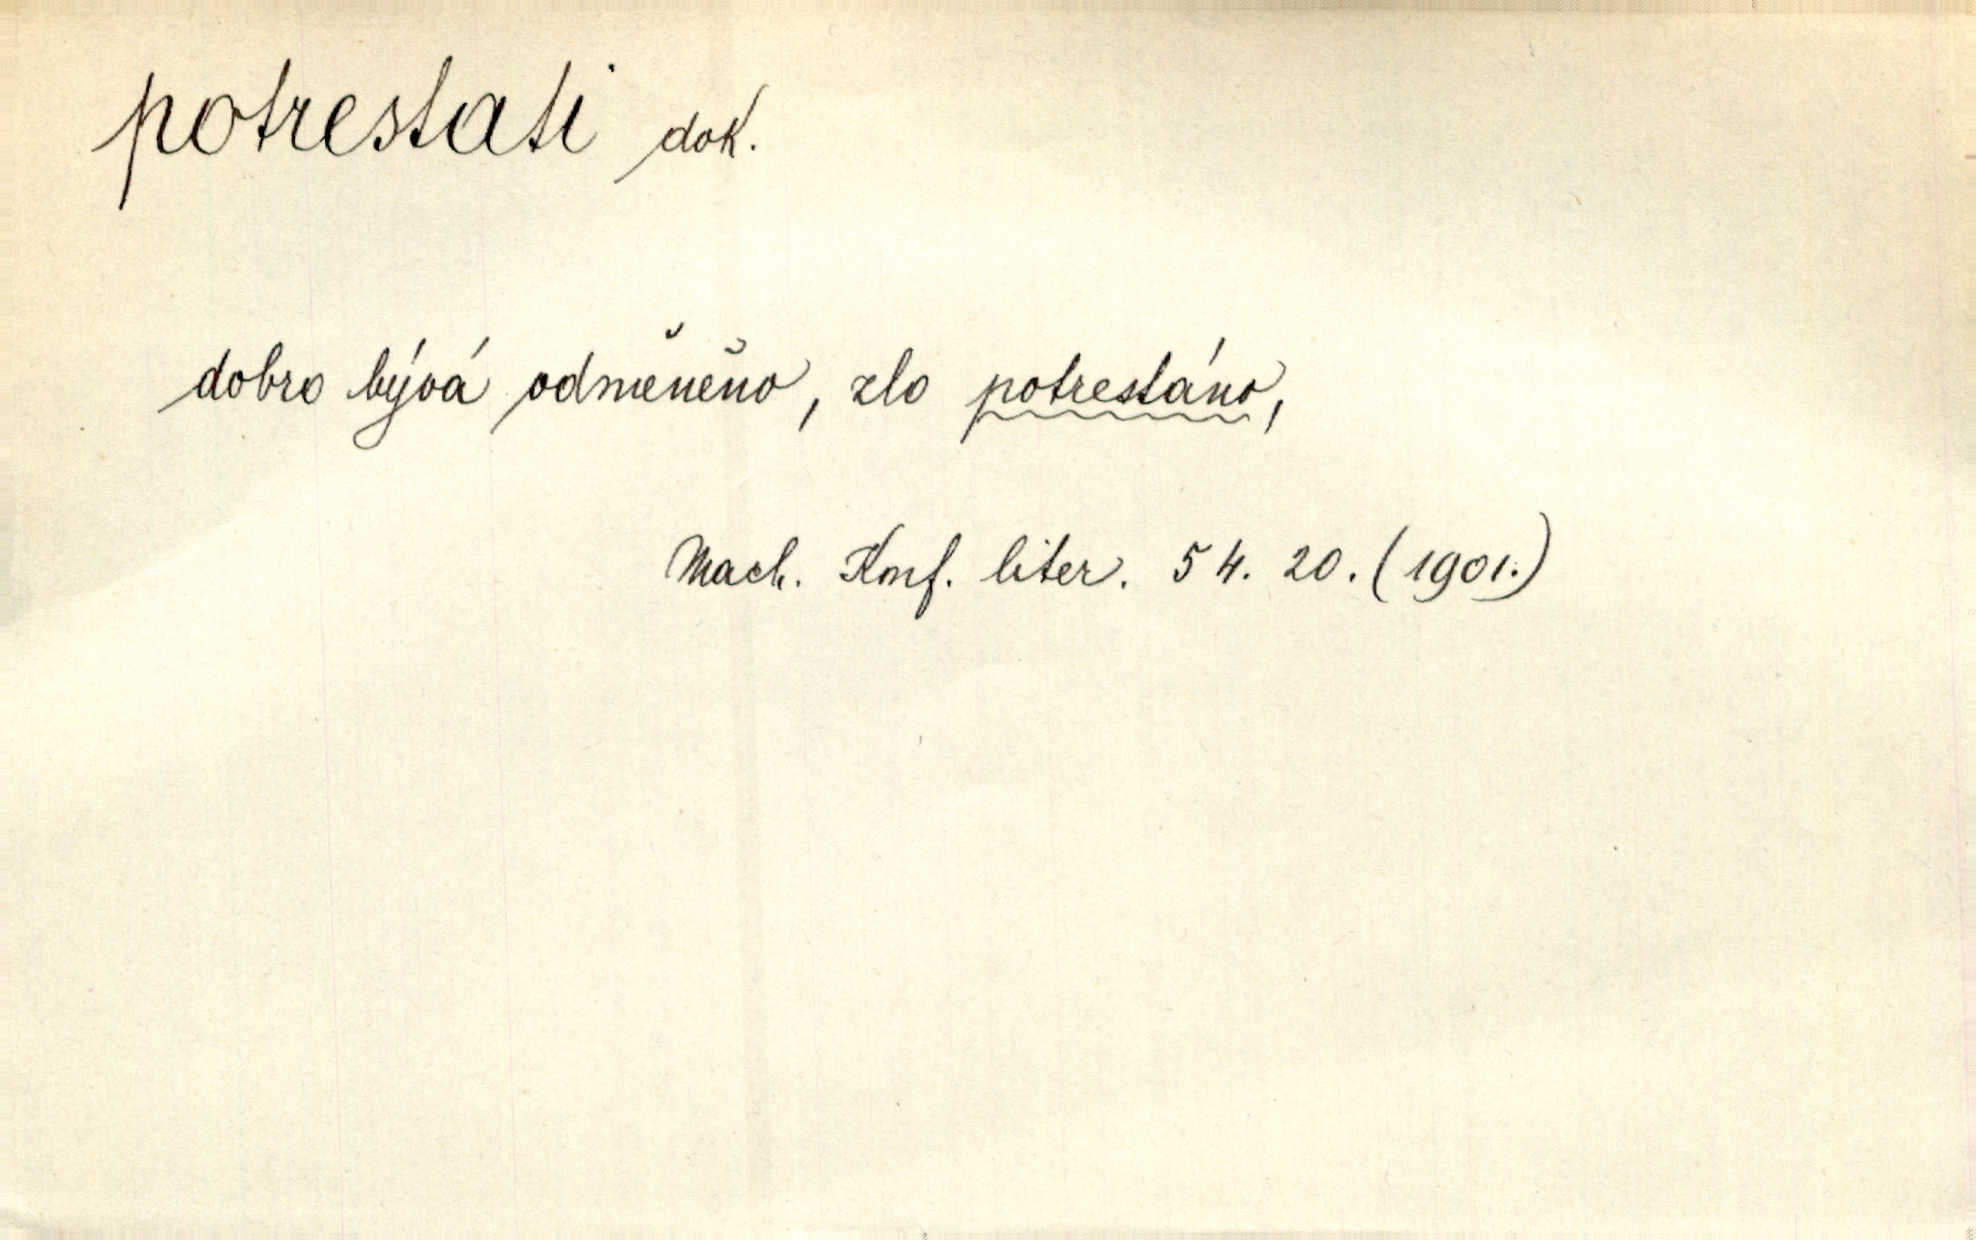 potrestati dok.
dobro bývá odměněno, zlo potrestáno,
Mach. Konf. liter. 54. 20. (1901.)